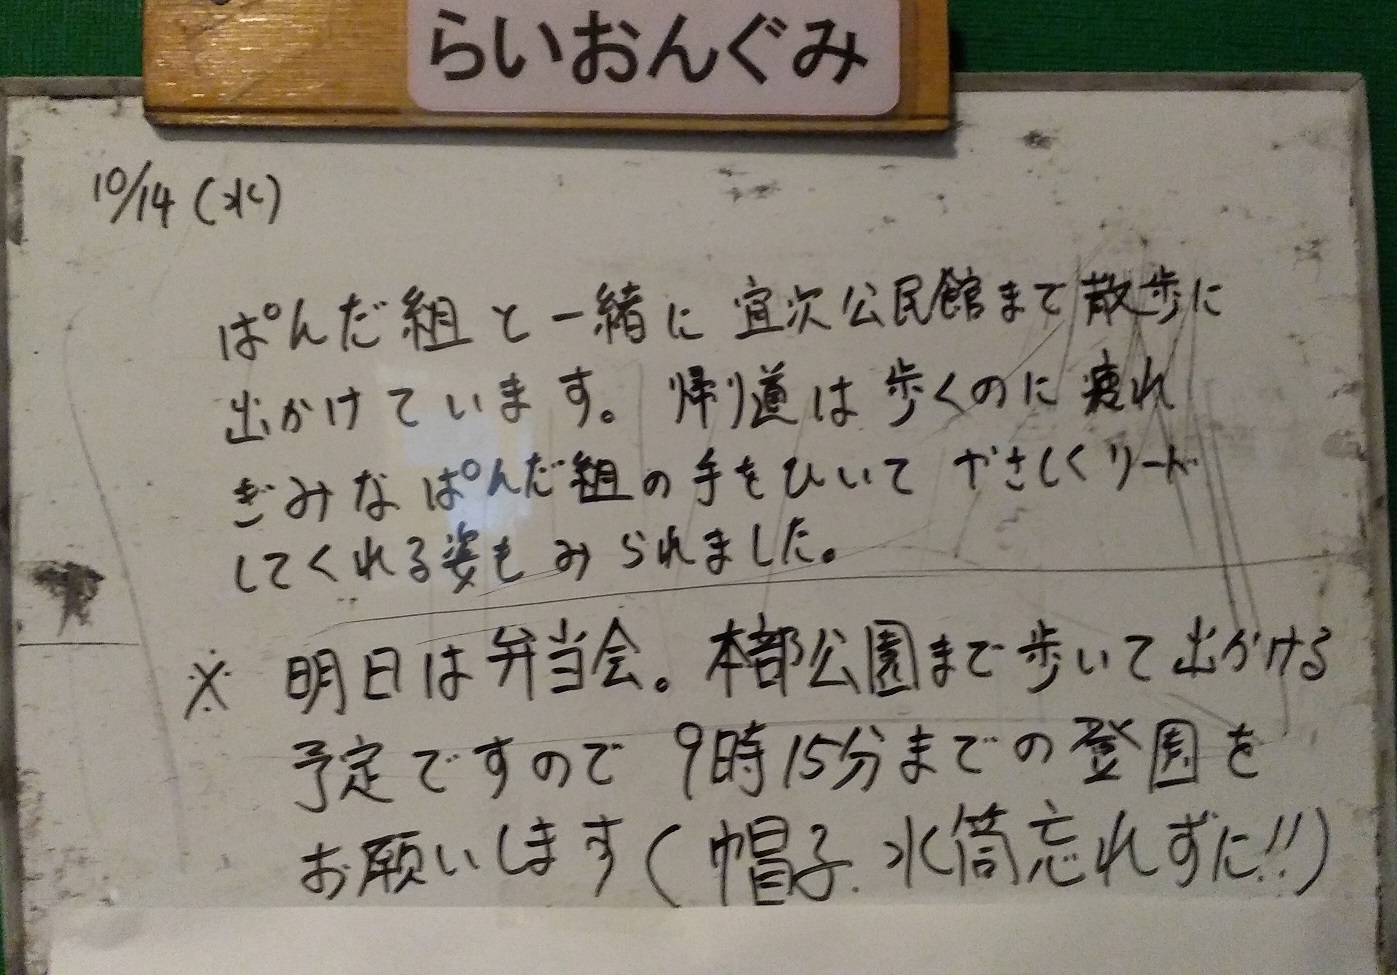 らいおんぐみ
10/14(水)
ぱんだ組と一緒に宜次公民館まで散歩に
出かけています。帰り道は歩くのに疲れ
ぎみなぱんだ組の手をひいてやさしくリード
してくれる姿もみられました。
※ 明日は弁当会。本部公園まで歩いて出かける
予定ですので9時15分までの登園を
お願いします(帽子.水筒忘れずに!!)